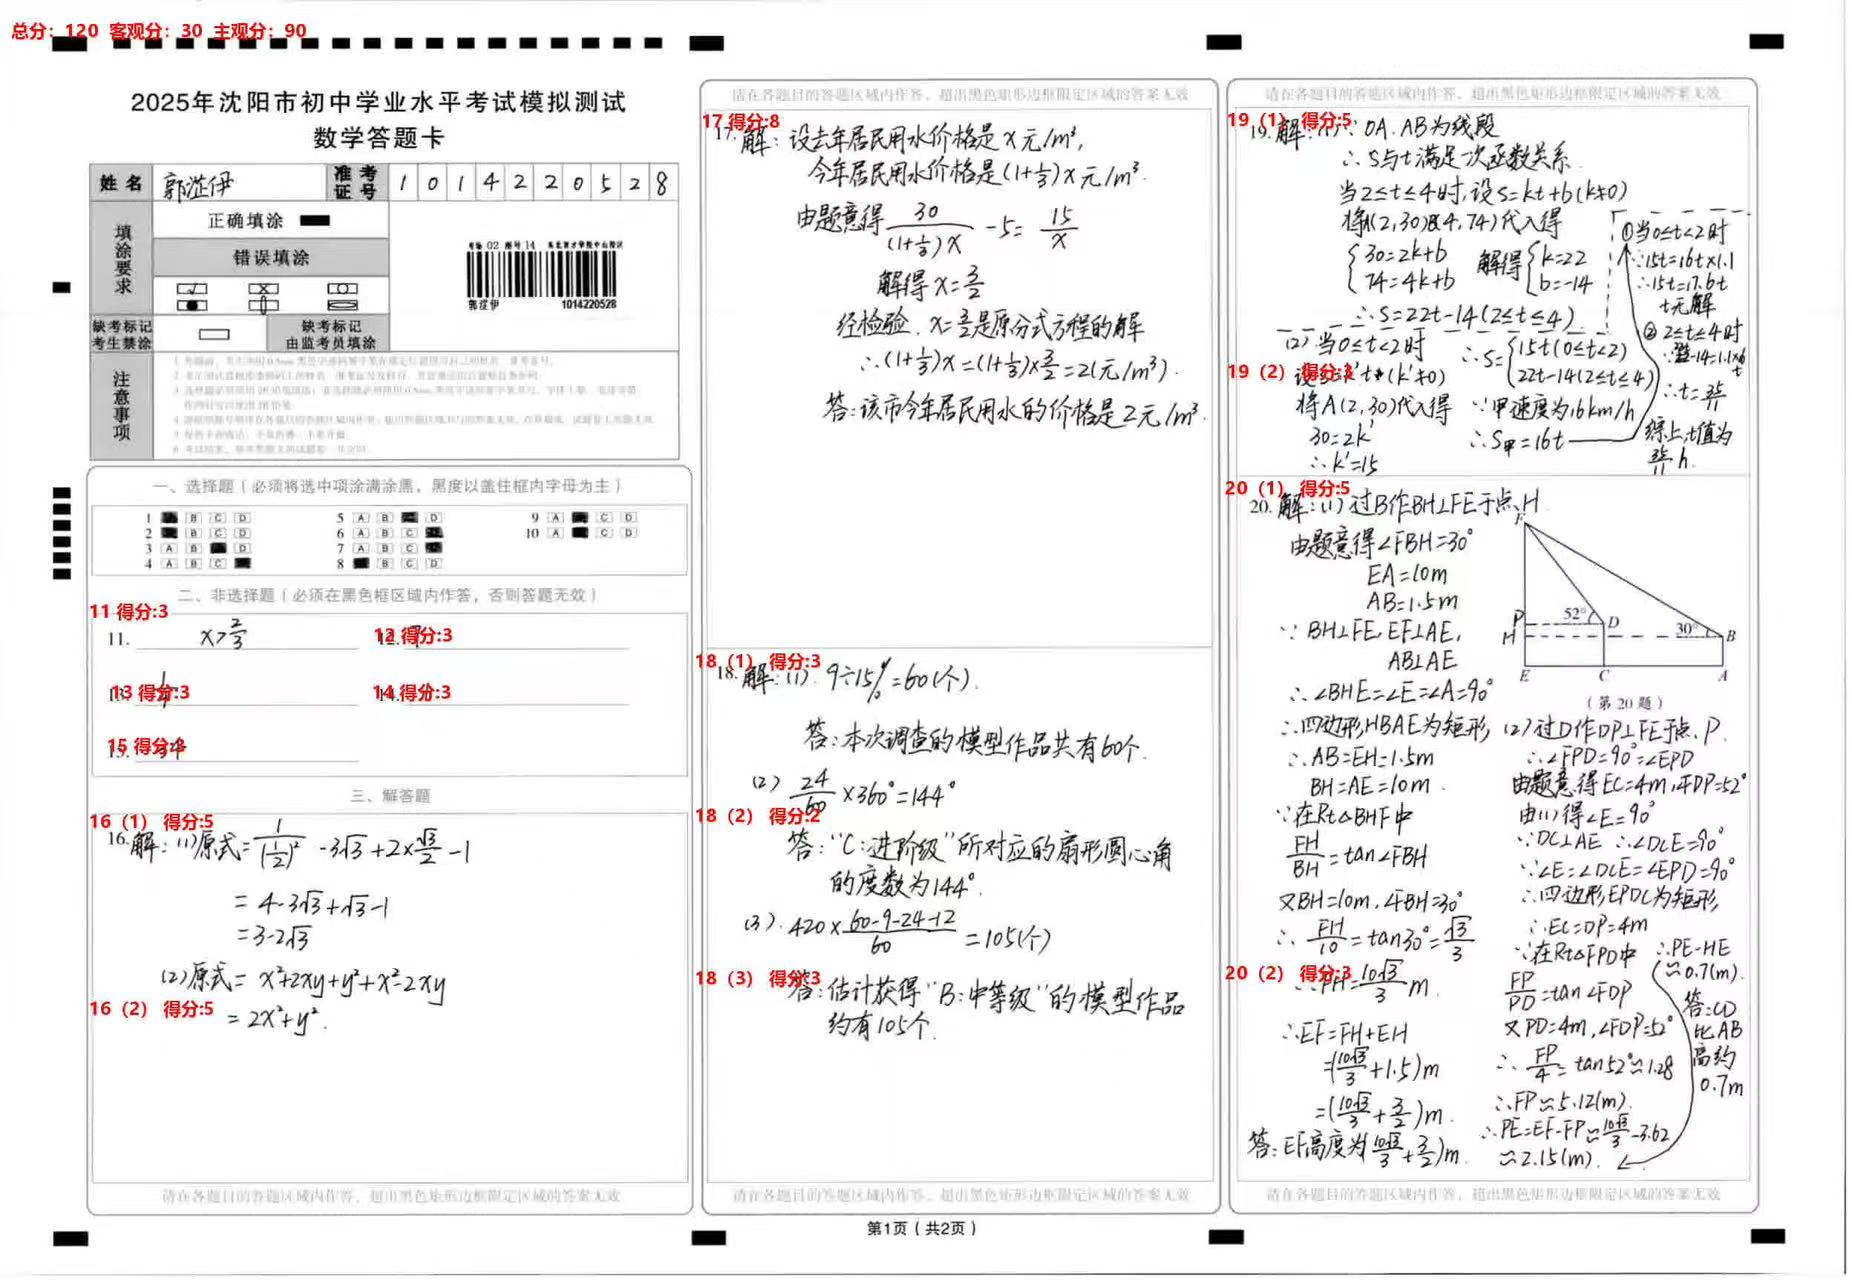 总分：120 客观分：30 主观分：90
2025年沈阳市初中学业水平考试模拟测试
数学答题卡
姓 名
准 考 证 号
1 0 1 4 2 2 0 5 2 8
填涂要求
正确填涂
错误填涂
缺考标记 考生禁涂
缺考标记 由监考员填涂
1014220528
注意事项
一、选择题（必须将选中项涂满涂黑，黑度以盖住框内字母为主）
二、非选择题（必须在黑色框区域内作答，否则答题无效）
11 得分:3
11. x>2/3
12 得分:3
13 得分:3
14 得分:3
15 得分:3
三、解答题
16（1） 得分:5
16.解：(1)原式=1/(1/2)²-3√3+2×√3/2-1
=4-3√3+√3-1
=3-2√3
(2)原式=x²+2xy+y²+x²-2xy
16（2） 得分:5
=2x²+y².
请在各题目的答题区域内作答，超出黑色矩形边框限定区域的答案无效
请在各题目的答题区域内作答，超出黑色矩形边框限定区域的答案无效
17 得分:8
17.解：设去年居民用水价格是x元/m³,
今年居民用水价格是(1+1/3)x元/m³.
由题意得 30/(1+1/3)x -5= 15/x
解得x=3/2
经检验，x=3/2是原分式方程的解
∴(1+1/3)x=(1+1/3)×3/2=2(元/m³).
答：该市今年居民用水的价格是2元/m³.
18（1） 得分:3
18.解：(1). 9÷15%=60(个).
答：本次调查的模型作品共有60个.
(2) 24/60×360°=144°
18（2） 得分:2
答："C：进阶级"所对应的扇形圆心角
的度数为144°.
(3). 420×(60-9-24-12)/60=105(个)
18（3） 得分:3
答：估计获得"B：中等级"的模型作品
约有105个.
请在各题目的答题区域内作答，超出黑色矩形边框限定区域的答案无效
第1页（共2页）
请在各题目的答题区域内作答，超出黑色矩形边框限定区域的答案无效
19（1） 得分:5
19.解：(1)∵OA、AB为线段
∴S与t满足一次函数关系.
当2≤t≤4时,设S=kt+b(k≠0)
将(2,30)(4,74)代入得
{30=2k+b 74=4k+b 解得{k=22 b=-14
∴S=22t-14(2≤t≤4)
(2)当0≤t<2时
19（2） 得分:3
设S=k't(k'≠0)
将A(2,30)代入得
30=2k'
∴k'=15
∴S={15t(0≤t<2) 22t-14(2≤t≤4)
∵甲速度为16km/h
∴S甲=16t
①当0≤t<2时
∵15t=16t×1.1
∴15t=17.6t
t无解
②2≤t≤4时
∴t=35/11
综上,t值为
35/11 h.
20（1） 得分:5
20.解：(1)过B作BH⊥FE于点H
由题意得∠FBH=30°
EA=10m
AB=1.5m
∵BH⊥FE,EF⊥AE,
AB⊥AE
∴∠BHE=∠E=∠A=90°
∴四边形HBAE为矩形
∴AB=EH=1.5m
BH=AE=10m.
∵在Rt△BHF中
FH/BH=tan∠FBH
又BH=10m,∠FBH=30°
∴FH/10=tan30°=√3/3
20（2） 得分:3
∴FH=10√3/3 m.
∴EF=FH+EH
=(10√3/3+1.5)m
=(10√3/3+3/2)m.
答：EF高度为(10√3/3+3/2)m.
F
P
H
E
C
A
D
B
52°
30°
（第20题）
(2)过D作DP⊥FE于点P.
∴∠FPD=90°=∠EPD
由题意得EC=4m,∠FDP=52°
由(1)得∠E=90°
∵DC⊥AE ∴∠DCE=90°
∵∠E=∠DCE=∠EPD=90°
∴四边形EPDC为矩形,
∴EC=DP=4m
∵在Rt△FPD中
FP/PD=tan∠FDP
又PD=4m,∠FDP=52°
∴FP/4=tan52°≈1.28
∴FP≈5.12(m).
∴PE=EF-FP≈10√3/3-3.62
≈2.15(m).
∴PE-HE
≈0.7(m).
答：CD
比AB
高约
0.7m
请在各题目的答题区域内作答，超出黑色矩形边框限定区域的答案无效